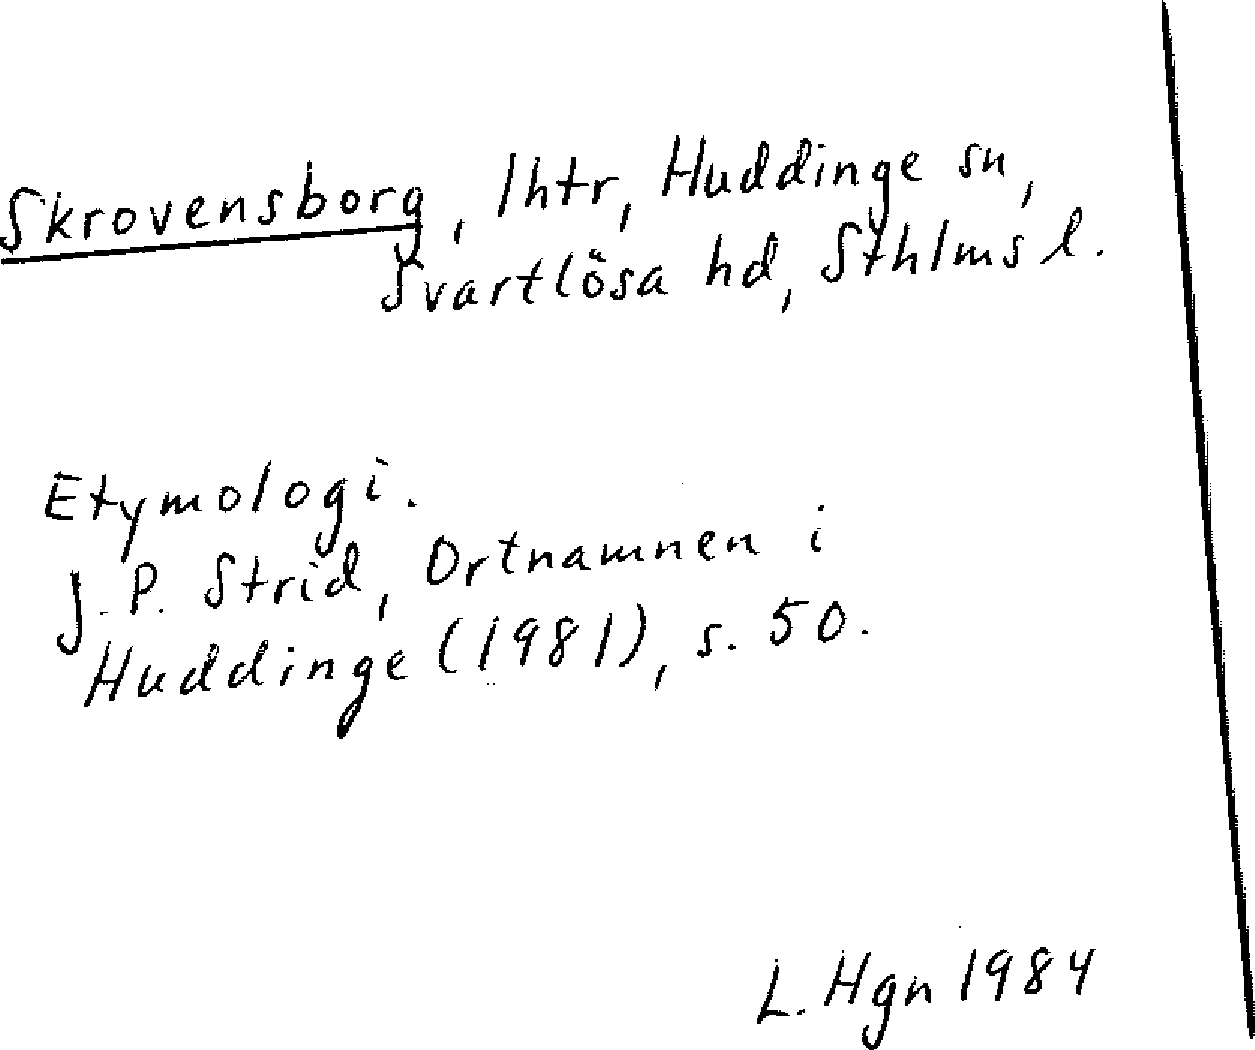 Skrovensborg, lhtr, Huddinge sn,
Svartlösa hd, Sthlms l.
Etymologi.
J.P. Strid, Ortnamnen i
Huddinge (1981), s. 50.
L. Hgn 1984